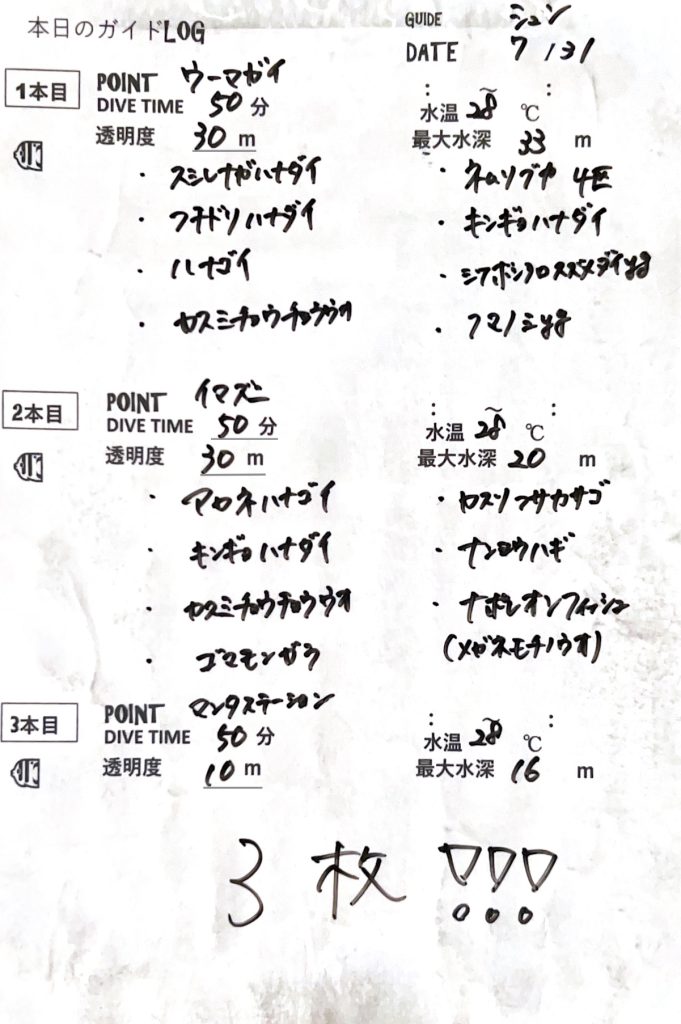 本日のガイドLOG
GUIDE シュン
DATE 7/31
1本目
POINT ウーマガイ
DIVE TIME 50 分
: ~ :
水温 28 ℃
透明度 30 m
最大水深 33 m
・スミレナガハナダイ
・ネムリブカ 4匹
・フチドリハナダイ
・キンギョハナダイ
・ハナゴイ
・シコクスズメダイyg
・カスミチョウチョウウオ
・クマノミyg
2本目
POINT イマズニ
DIVE TIME 50 分
: ~ :
水温 28 ℃
透明度 30 m
最大水深 20 m
・アカネハナゴイ
・カスリフサカサゴ
・キンギョハナダイ
・ナンヨウハギ
・カスミチョウチョウウオ
・ナポレオンフィッシュ
・ゴマモンガラ
(メガネモチノウオ)
3本目
POINT マンタステーション
DIVE TIME 50 分
: ~ :
水温 28 ℃
透明度 10 m
最大水深 16 m
3枚 !!!